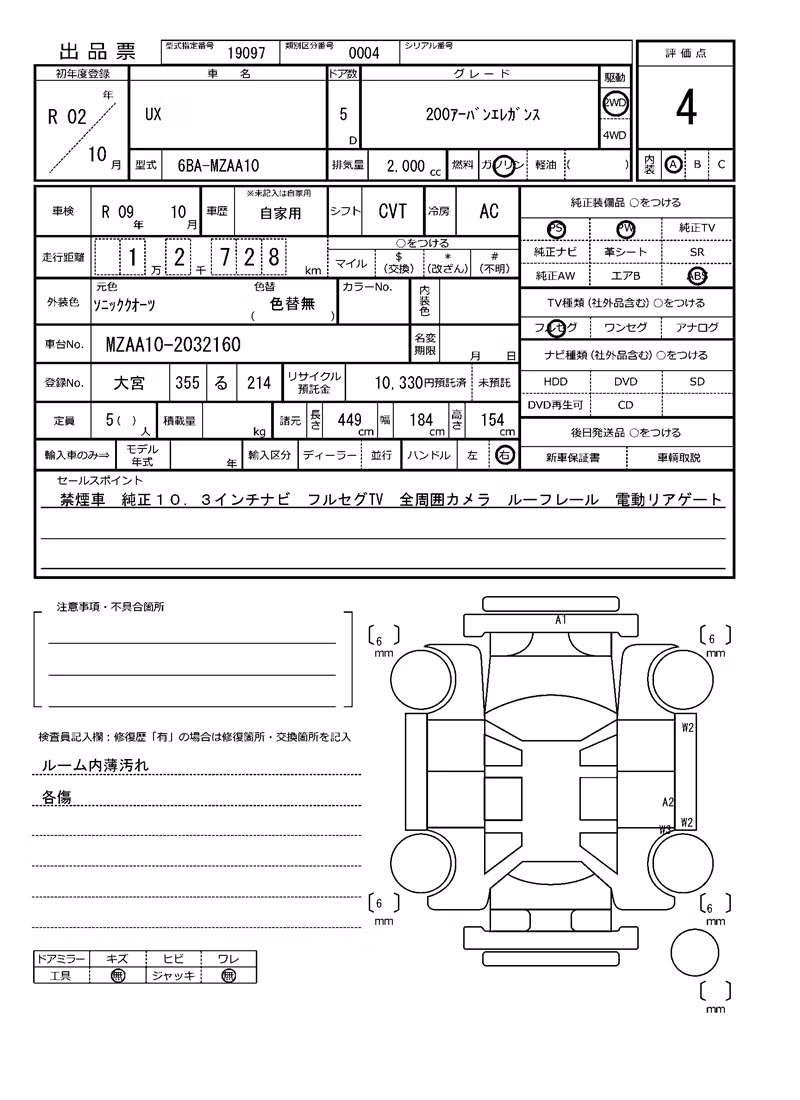 出品票 型式指定番号 19097 類別区分番号 0004 シリアル番号 評価点
初年度登録 車名 ドア数 グレード 駆動
R 02年 10月 UX 5D 200アーバンエレガンス 2WD 4WD 4
型式 6BA-MZAA10 排気量 2,000cc 燃料 ガソリン 軽油 ( ) 内装 A B C
車検 R 09年 10月 車歴 ※未記入は自家用 自家用 シフト CVT 冷房 AC
走行距離 1万2千728km ○をつける マイル $(交換) *(改ざん) #(不明)
外装色 元色 ソニッククオーツ 色替 ( 色替無 ) カラーNo. 内装色
車台No. MZAA10-2032160 名変期限 月 日
登録No. 大宮 355 る 214 リサイクル預託金 10,330円預託済 未預託
定員 5( )人 積載量 kg 諸元 長さ 449cm 幅 184cm 高さ 154cm
輸入車のみ⇒ モデル年式 年 輸入区分 ディーラー 並行 ハンドル 左 右
純正装備品 ○をつける
PS PW 純正TV
純正ナビ 革シート SR
純正AW エアB ABS
TV種類(社外品含む)○をつける
フルセグ ワンセグ アナログ
ナビ種類(社外品含む)○をつける
HDD DVD SD
DVD再生可 CD
後日発送品 ○をつける
新車保証書 車輌取説
セールスポイント
禁煙車 純正10.3インチナビ フルセグTV 全周囲カメラ ルーフレール 電動リアゲート
注意事項・不具合箇所
検査員記入欄：修復歴「有」の場合は修復箇所・交換箇所を記入
ルーム内薄汚れ
各傷
ドアミラー キズ ヒビ ワレ
工具 無 ジャッキ 無
A1
6 mm
6 mm
W2
A2
W2
W3
6 mm
6 mm
mm